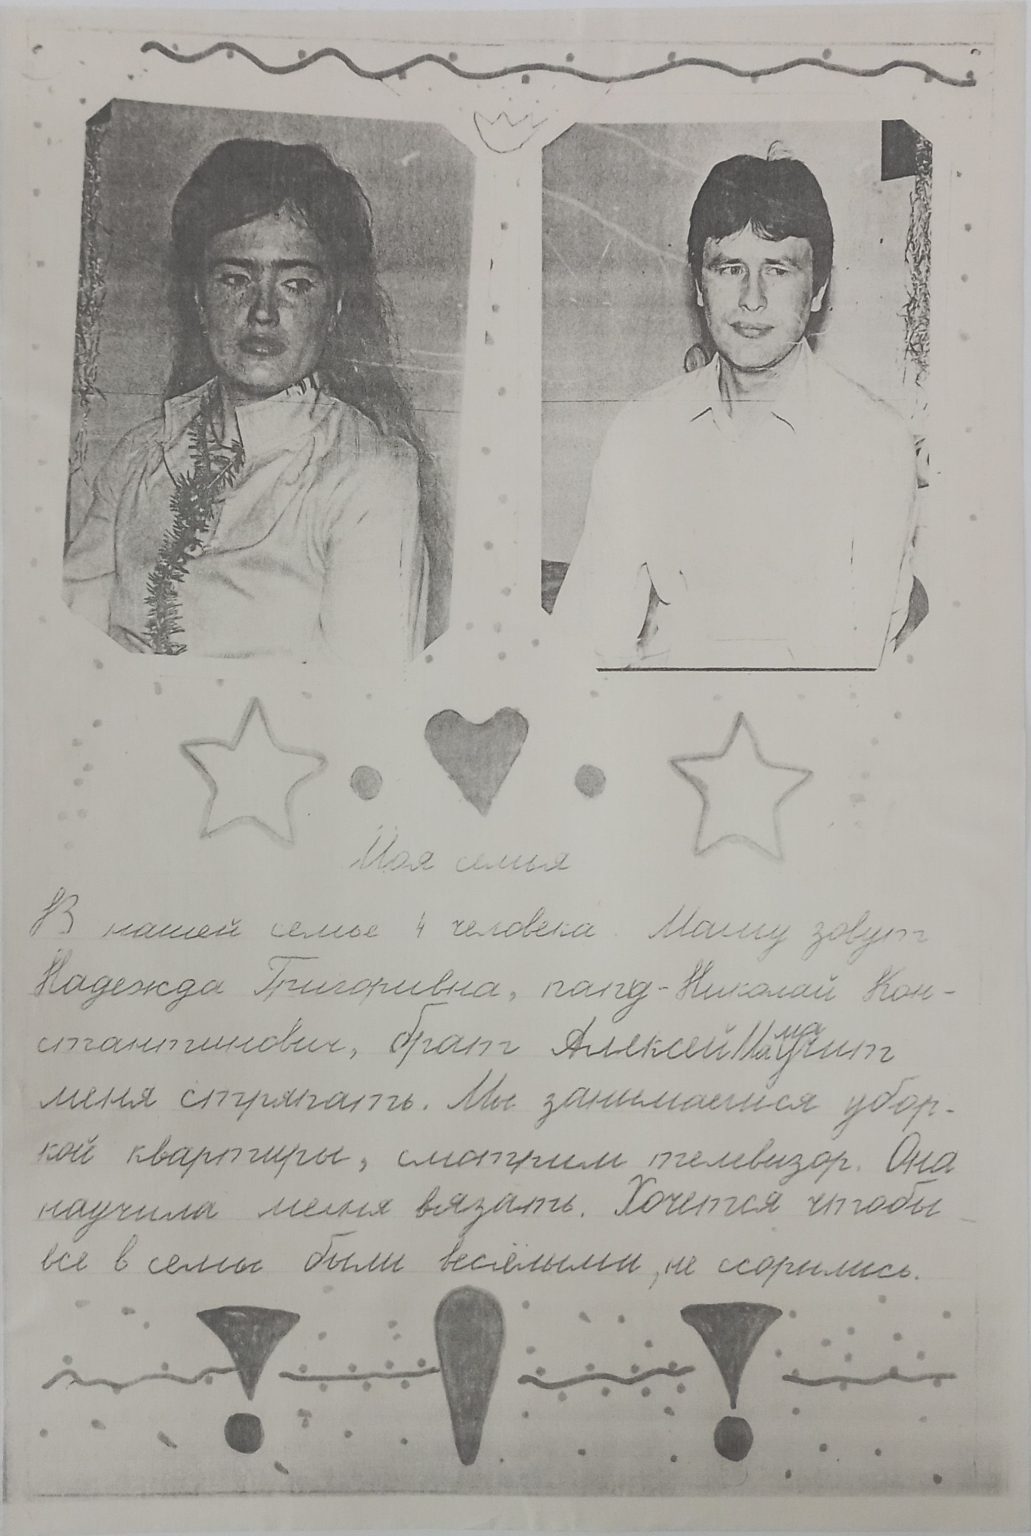 Моя семья
В нашей семье 4 человека. Маму зовут
Надежда Григоривна, папу - Николай Кон-
стантинович, брат Алексей Мама учит
меня стряпать. Мы занимаемся убор-
кой квартиры, смотрим телевизор. Она
научила меня вязать. Хочется чтобы
все в семье были весёлыми, не ссорились.